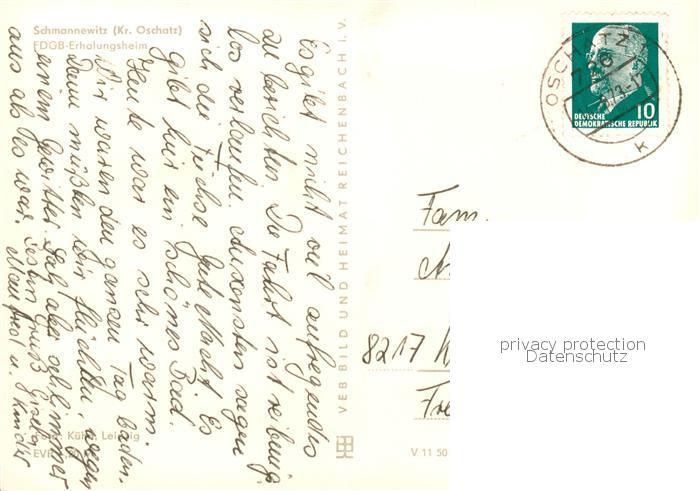 Schmannewitz (Kr. Oschatz)
FDGB-Erholungsheim
Es gibt nicht viel aufregendes
zu berichten. Die Fahrt ist reibungs
los verlaufen. Ansonsten sagen
sich die Füchse Gute Nacht. Es
gibt hier ein schönes Bad.
Heute war es sehr warm.
Wir waren den ganzen Tag baden.
Dann mußten wir flüchten, wegen
einem Gewitter. Sah aber schlimmer
aus als es war. Gruß Gisela
Manfred u. Kinder
Foto: Kühn, Leipzig
VEB BILD UND HEIMAT REICHENBACH I. V.
V 11 50
OSCHATZ
DEUTSCHE
DEMOKRATISCHE REPUBLIK
10
k
Fam.
8217
privacy protection
Datenschutz